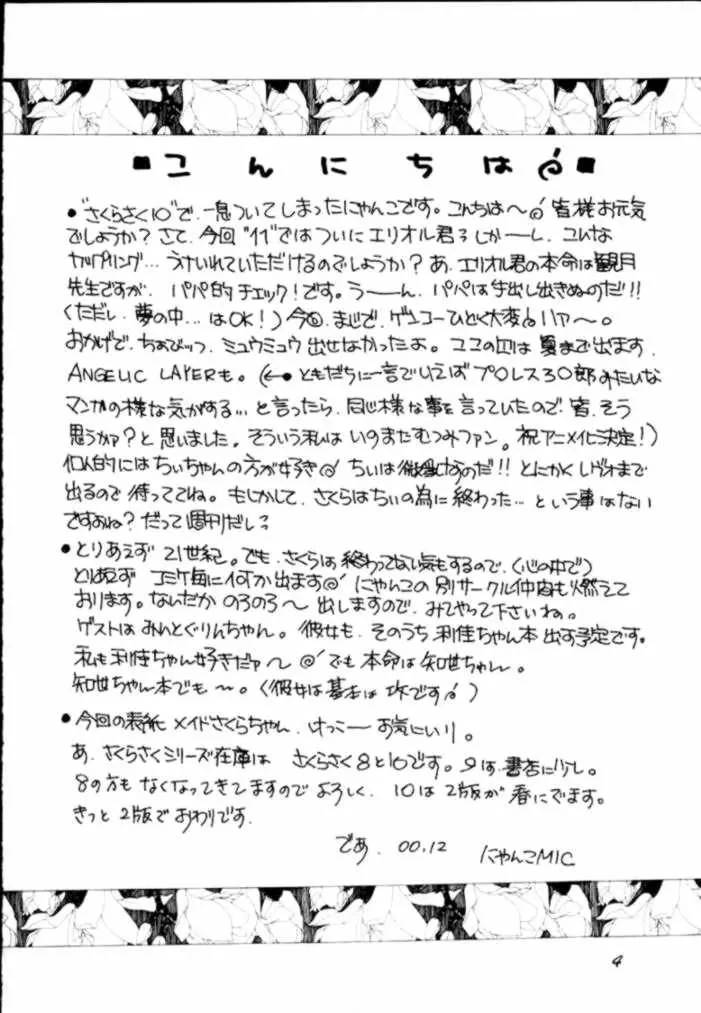 ■こんにちは■
●"さくらさく10"で、一息ついてしまったにゃんこです。こんちは〜 皆様お元気
でしょうか?さて、今回"11"ではついにエリオル君 しかーし、こんな
カップリング…うけいれていただけるのでしょうか?あ、エリオル君の本命は観月
先生ですが、パパ的チェック!です。うーーん、パパは手出し出きぬのだ!!
(ただし、夢の中…はOK!)今回、まじで、ゲンコーひどく大変 ハァ〜。
おかげで、ちょびっツ、ミュウミュウ出せなかったよ。ココの は夏まで出ます。
ANGELIC LAYERも。(←●ともだちに一言でいえばプロレス3○郎みたいな
マンガの様な気がする…と言ったら、同じ様な事を言っていたので皆、そう
思うかァ?と思いました。そういう私はいのまたむつみファン。祝アニメ化決定!)
個人的にはちぃちゃんの方が好き ちぃは なのだ!!とにかく まで
出るので待っててね。もしかして、さくらはちぃの為に終わった…という事はない
ですよね?だって週刊だし
●とりあえず21世紀。でも、さくらは終わってない気もするので、(心の中で)
とりあえずコミケ毎に何か出ます にゃんこの別サークル仲間も燃えて
おります。なんだかのろのろ〜出しますので、みてやって下さいね。
ゲストはみんとぐりんちゃん。彼女も、そのうち利佳ちゃん本出す予定です。
私も利佳ちゃん好きだァ〜 でも本命は知世ちゃん。
知世ちゃん本でも〜。(彼女は基本は攻です)
●今回の表紙メイドさくらちゃん、けっこーお気にいり。
あ、さくらさくシリーズ在庫は さくらさく8と10です。9は書店に少し。
8の方もなくなってきてますのでよろしく、10は2版が春にでます。
きっと2版でおわりです。
であ、00.12 にゃんこMIC
4